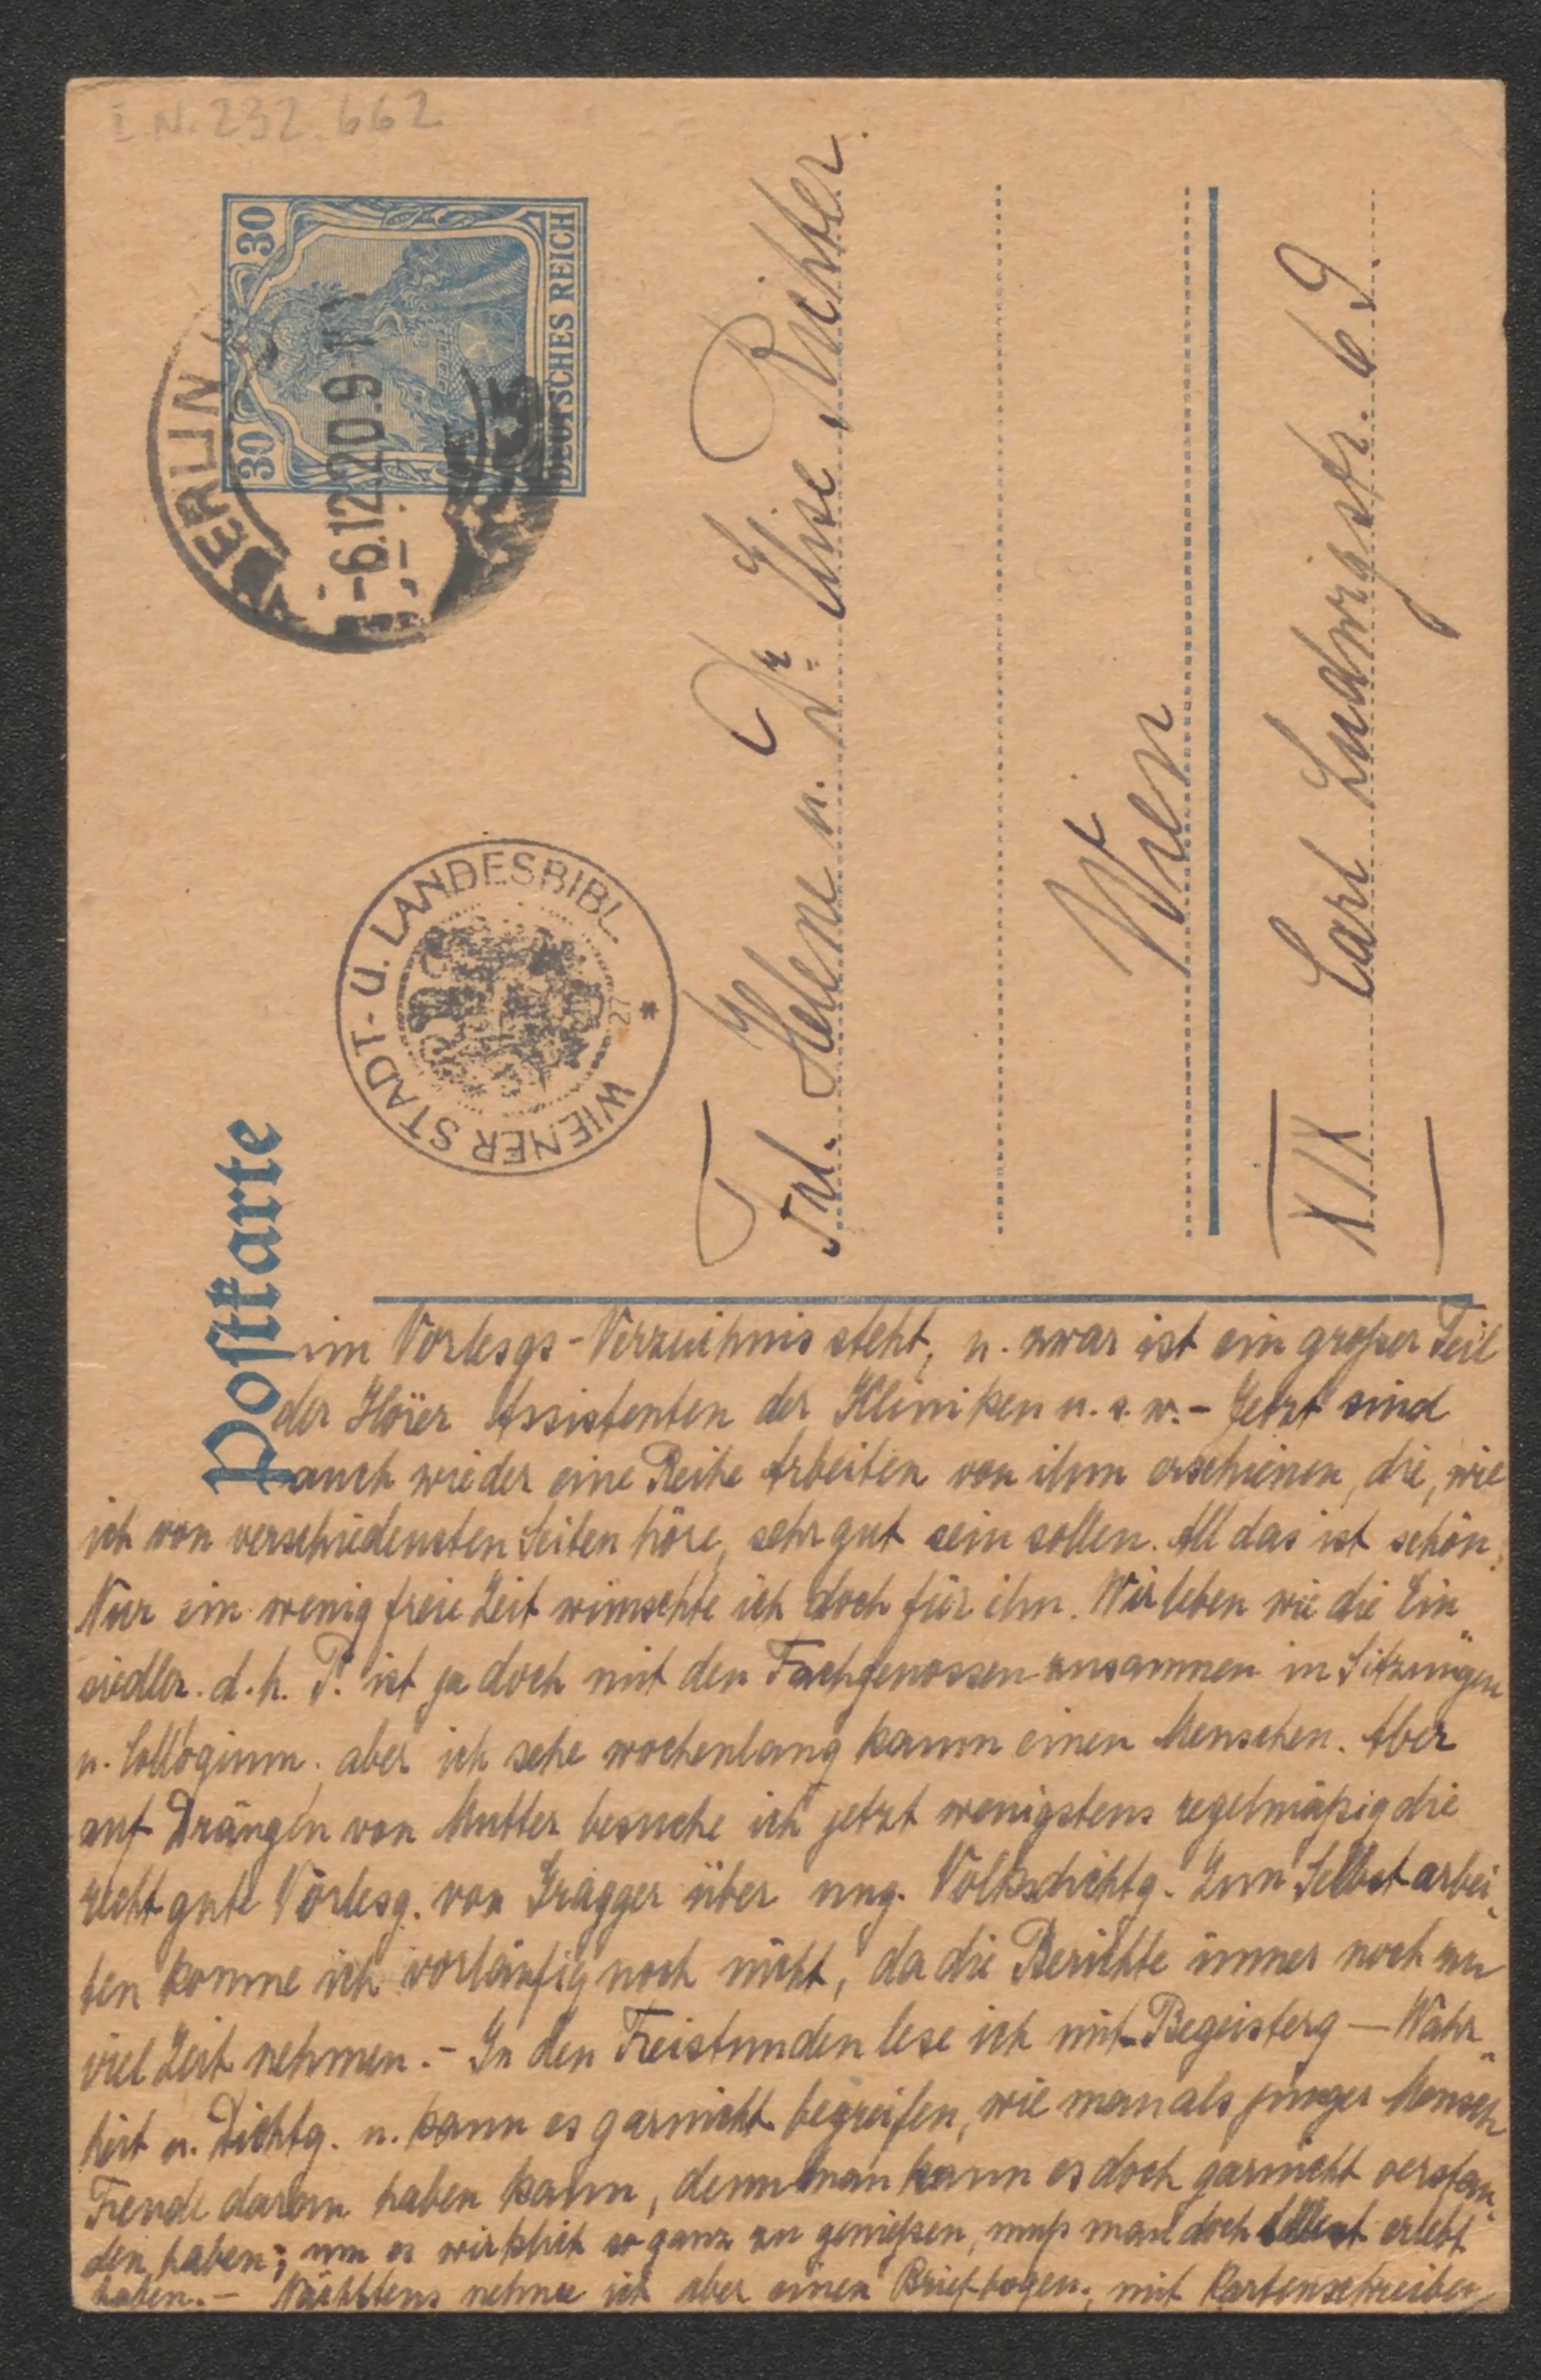 I.N. 232.662
Postkarte
30 30
DEUTSCHES REICH
BERLIN
-6.12.20.9
WIENER STADT- U. LANDESBIBL.
27
Frl. Helene u. Dr. Elise Richter.
Wien
XIX Carl Ludwigstr. 69.
im Vorlesgs-Verzeichnis steht, u. zwar ist ein großer Teil
der Hörer Assistenten der Kliniken u.s.w. - Jetzt sind
auch wieder eine Reihe Arbeiten von ihm erschienen, die, wie
ich von verschiedensten Seiten höre, sehr gut sein sollen. All das ist schön.
Nur ein wenig freie Zeit wünschte ich doch für ihn. Wir leben wie die Ein-
siedler. d.h. P. ist ja doch mit den Fachgenossen zusammen in Sitzungen
u. Colloqium; aber ich sehe wochenlang kaum einen Menschen. Aber
auf Drängen von Mutter besuche ich jetzt wenigstens regelmäßig die
recht gute Vorlesg. von Gragger über ung. Volksdichtg. Zum Selbst arbei-
ten komme ich vorläufig noch nicht, da die Berichte immer noch zu
viel Zeit nehmen. - In den Freistunden lese ich mit Begeisterg — Wahr-
heit u. Dichtg. u. kann es garnicht begreifen, wie man als junger Mensch
Freude daran haben kann, denn man kann es doch garnicht verstan-
den haben; um es wirklich so ganz zu genießen, muß man doch selbst erlebt
haben. - Nächstens nehme ich aber einen Briefbogen; mit Kartenschreiben